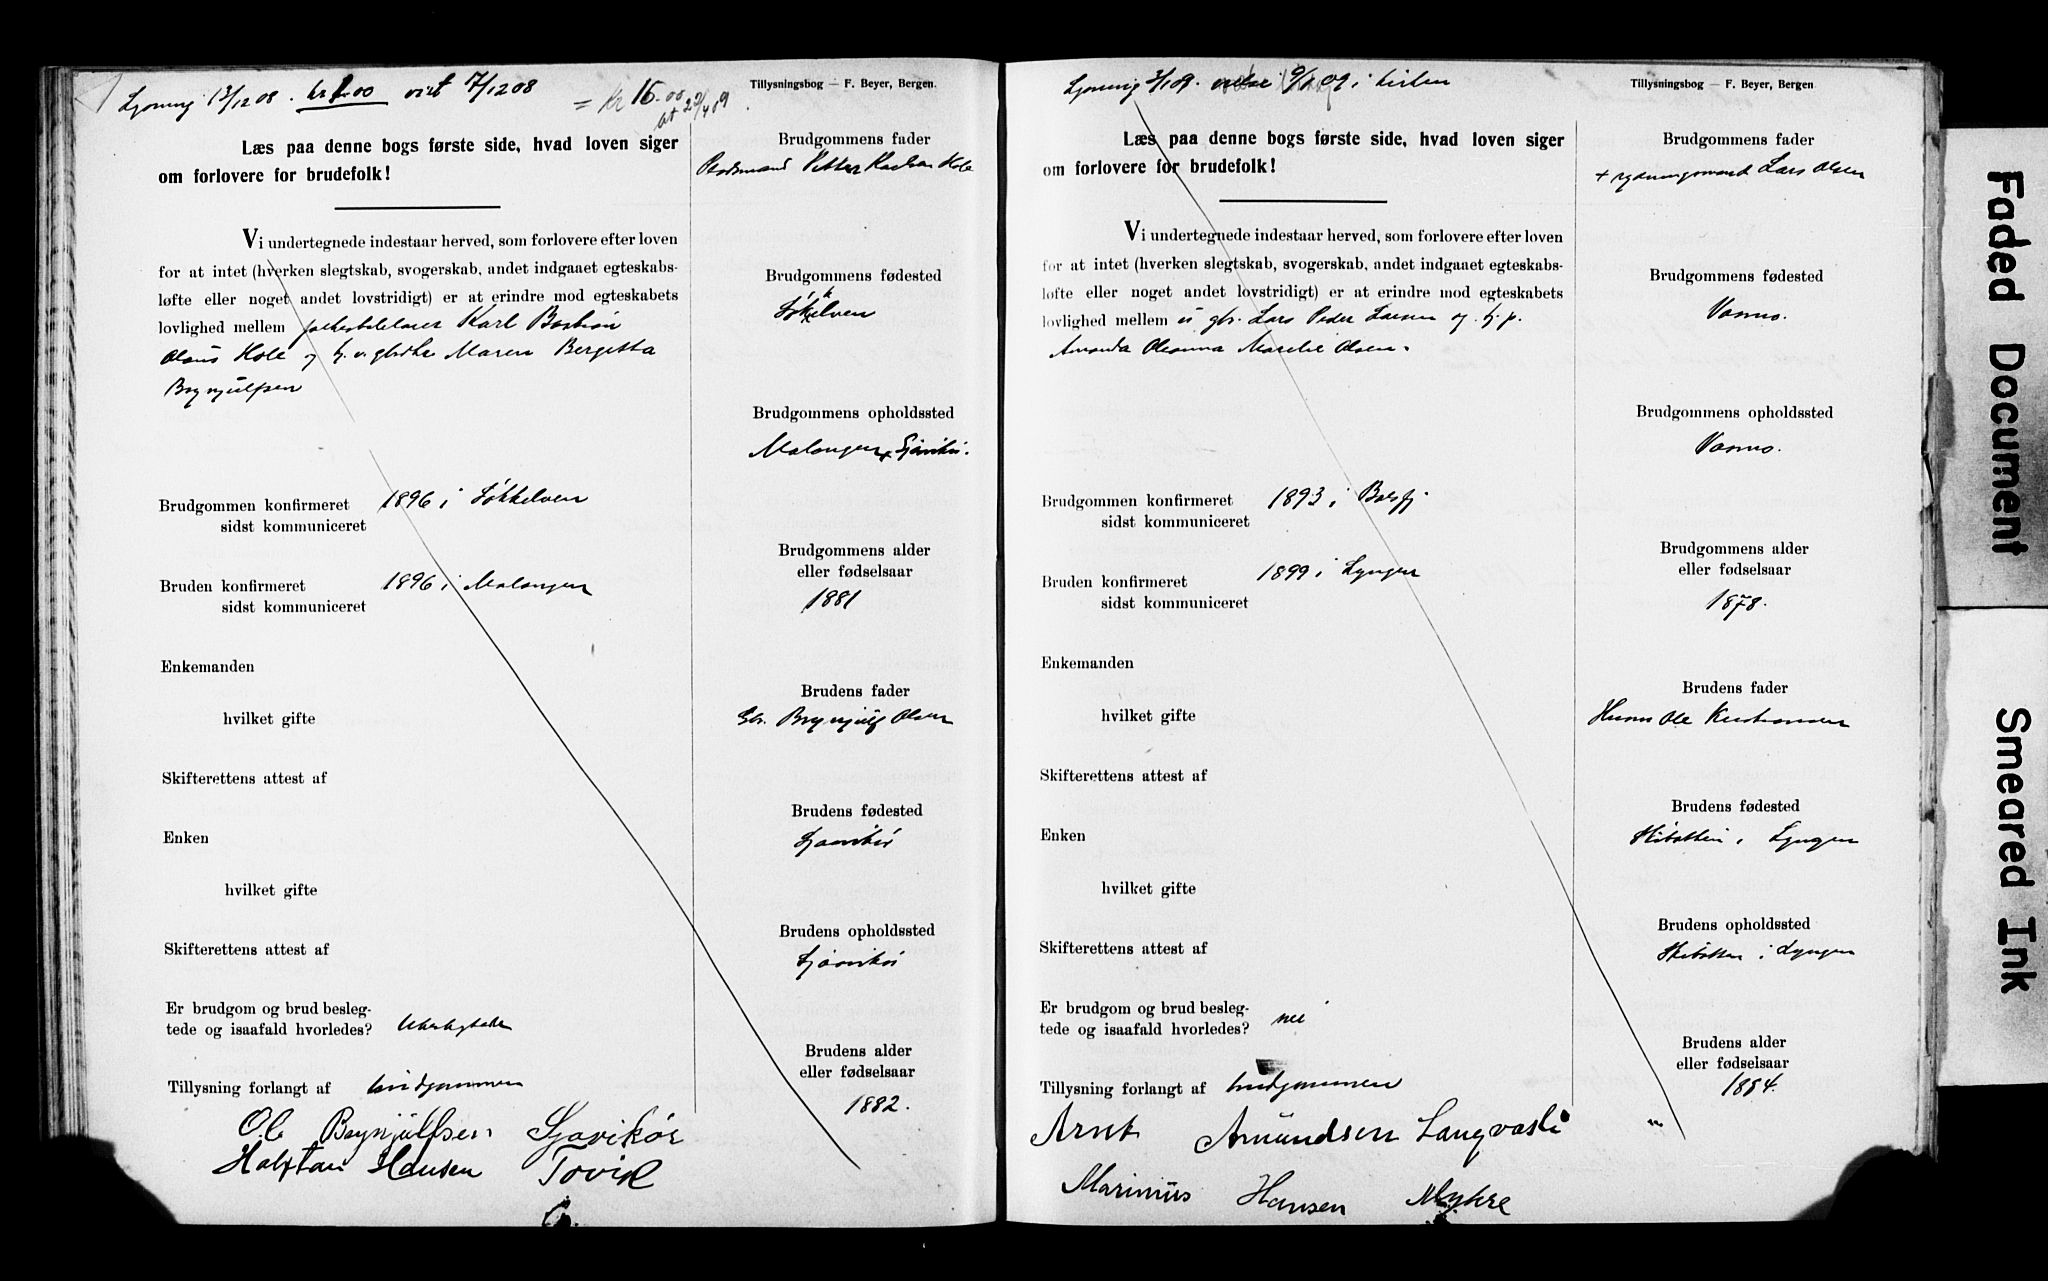 Lysning 13/12 08. kr 1.00 viet 17/12 08
= kr 15.00
at 22/4 09
Tillysningsbog — F. Beyer, Bergen.
Læs paa denne bogs første side, hvad loven siger
om forlovere for brudefolk!
Vi undertegnede indestaar herved, som forlovere efter loven
for at intet (hverken slegtskab, svogerskab, andet indgaaet egteskabs-
løfte eller noget andet lovstridigt) er at erindre mod egteskabets
lovlighed mellem Karl Bastian
Olaus Hole og Maren Bergitta
Brynjulfsen
Brudgommen konfirmeret 1896 i Søkkelven
sidst kommuniceret
Bruden konfirmeret 1896 i Malangen
sidst kommuniceret
Enkemanden
hvilket gifte
Skifterettens attest af
Enken
hvilket gifte
Skifterettens attest af
Er brudgom og brud besleg-
tede og isaafald hvorledes? Ubeslegtede
Tillysning forlangt af brudgommen
Brudgommens fader
Petter Karlsen Hole
Brudgommens fødested
Søkkelven
Brudgommens opholdssted
Malangen
Brudgommens alder
eller fødselsaar
1881
Brudens fader
Gbr. Brynjulf Olsen
Brudens fødested
Sjåvikør
Brudens opholdssted
Sjåvikør
Brudens alder
eller fødselsaar
1882.
Ole Brynjulfsen Sjøvikør
Halftan Hansen Tovik
Lysning 3/1 09. 9/1 09 i kirken
Tillysningsbog — F. Beyer, Bergen.
Læs paa denne bogs første side, hvad loven siger
om forlovere for brudefolk!
Vi undertegnede indestaar herved, som forlovere efter loven
for at intet (hverken slegtskab, svogerskab, andet indgaaet egteskabs-
løfte eller noget andet lovstridigt) er at erindre mod egteskabets
lovlighed mellem Lars Peder Larsen og
Amanda Oleanna Olsen.
Brudgommen konfirmeret 1893 i Balsfj.
sidst kommuniceret
Bruden konfirmeret 1899 i Lyngen
sidst kommuniceret
Enkemanden
hvilket gifte
Skifterettens attest af
Enken
hvilket gifte
Skifterettens attest af
Er brudgom og brud besleg-
tede og isaafald hvorledes? nei
Tillysning forlangt af brudgommen
Brudgommens fader
+ rydningsmand Lars Olsen
Brudgommens fødested
Brudgommens opholdssted
Brudgommens alder
eller fødselsaar
1878.
Brudens fader
Husm Ole Kristiansen
Brudens fødested
Skibotten i Lyngen
Brudens opholdssted
Skibotten i Lyngen
Brudens alder
eller fødselsaar
1884.
Arnt Amundsen Langvasli
Marinius Hansen Mykre
Faded Document
Smeared Ink